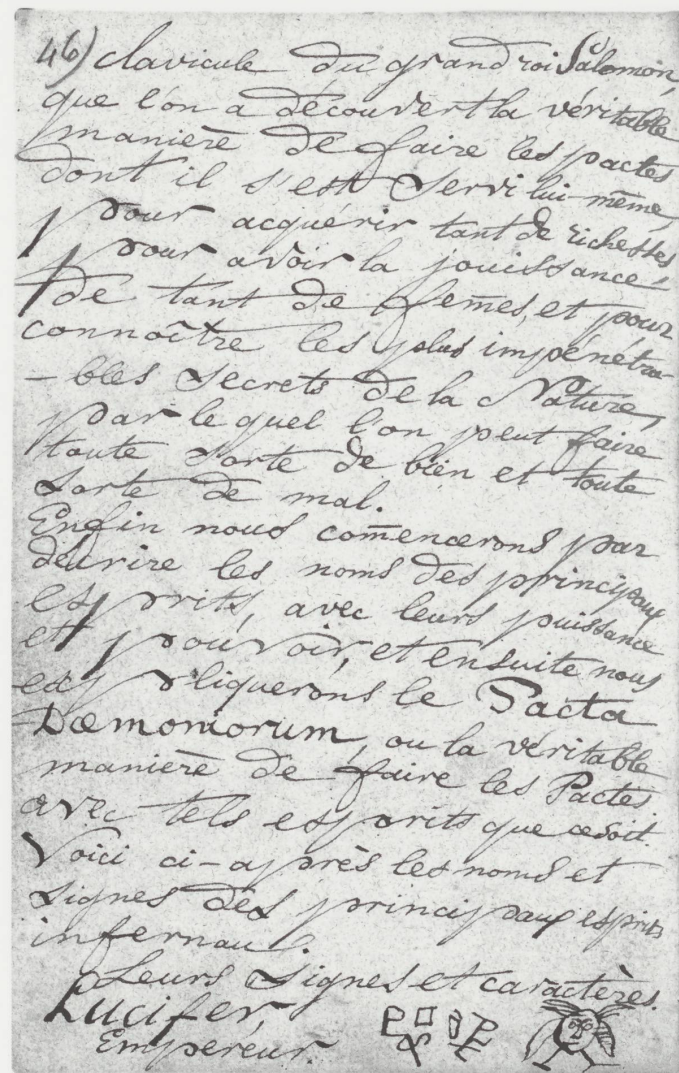 46) clavicule du grand roi Salomon,
que l'on a découvert la véritable
manière de faire les pactes
dont il s'est servi lui-même,
pour acquérir tant de richesses
pour avoir la jouissance
de tant de fem̄es, et pour
connoître les plus impénétra-
-bles secrets de la Nature,
par le quel l'on peut faire
toute sorte de bien et toute
sorte de mal.
Enfin nous com̄encerons par
décrire les noms des principaux
esprits, avec leurs puissance
et pouvoir, et ensuite nous
expliquerons le Pacta
Dæmoniorum, ou la véritable
manière de faire les Pactes
avec tels esprits que ce soit.
Voici ci-après les noms et
signes des principaux esprits
infernau.
Leurs signes et caractères.
Lucifer,
Empereur.